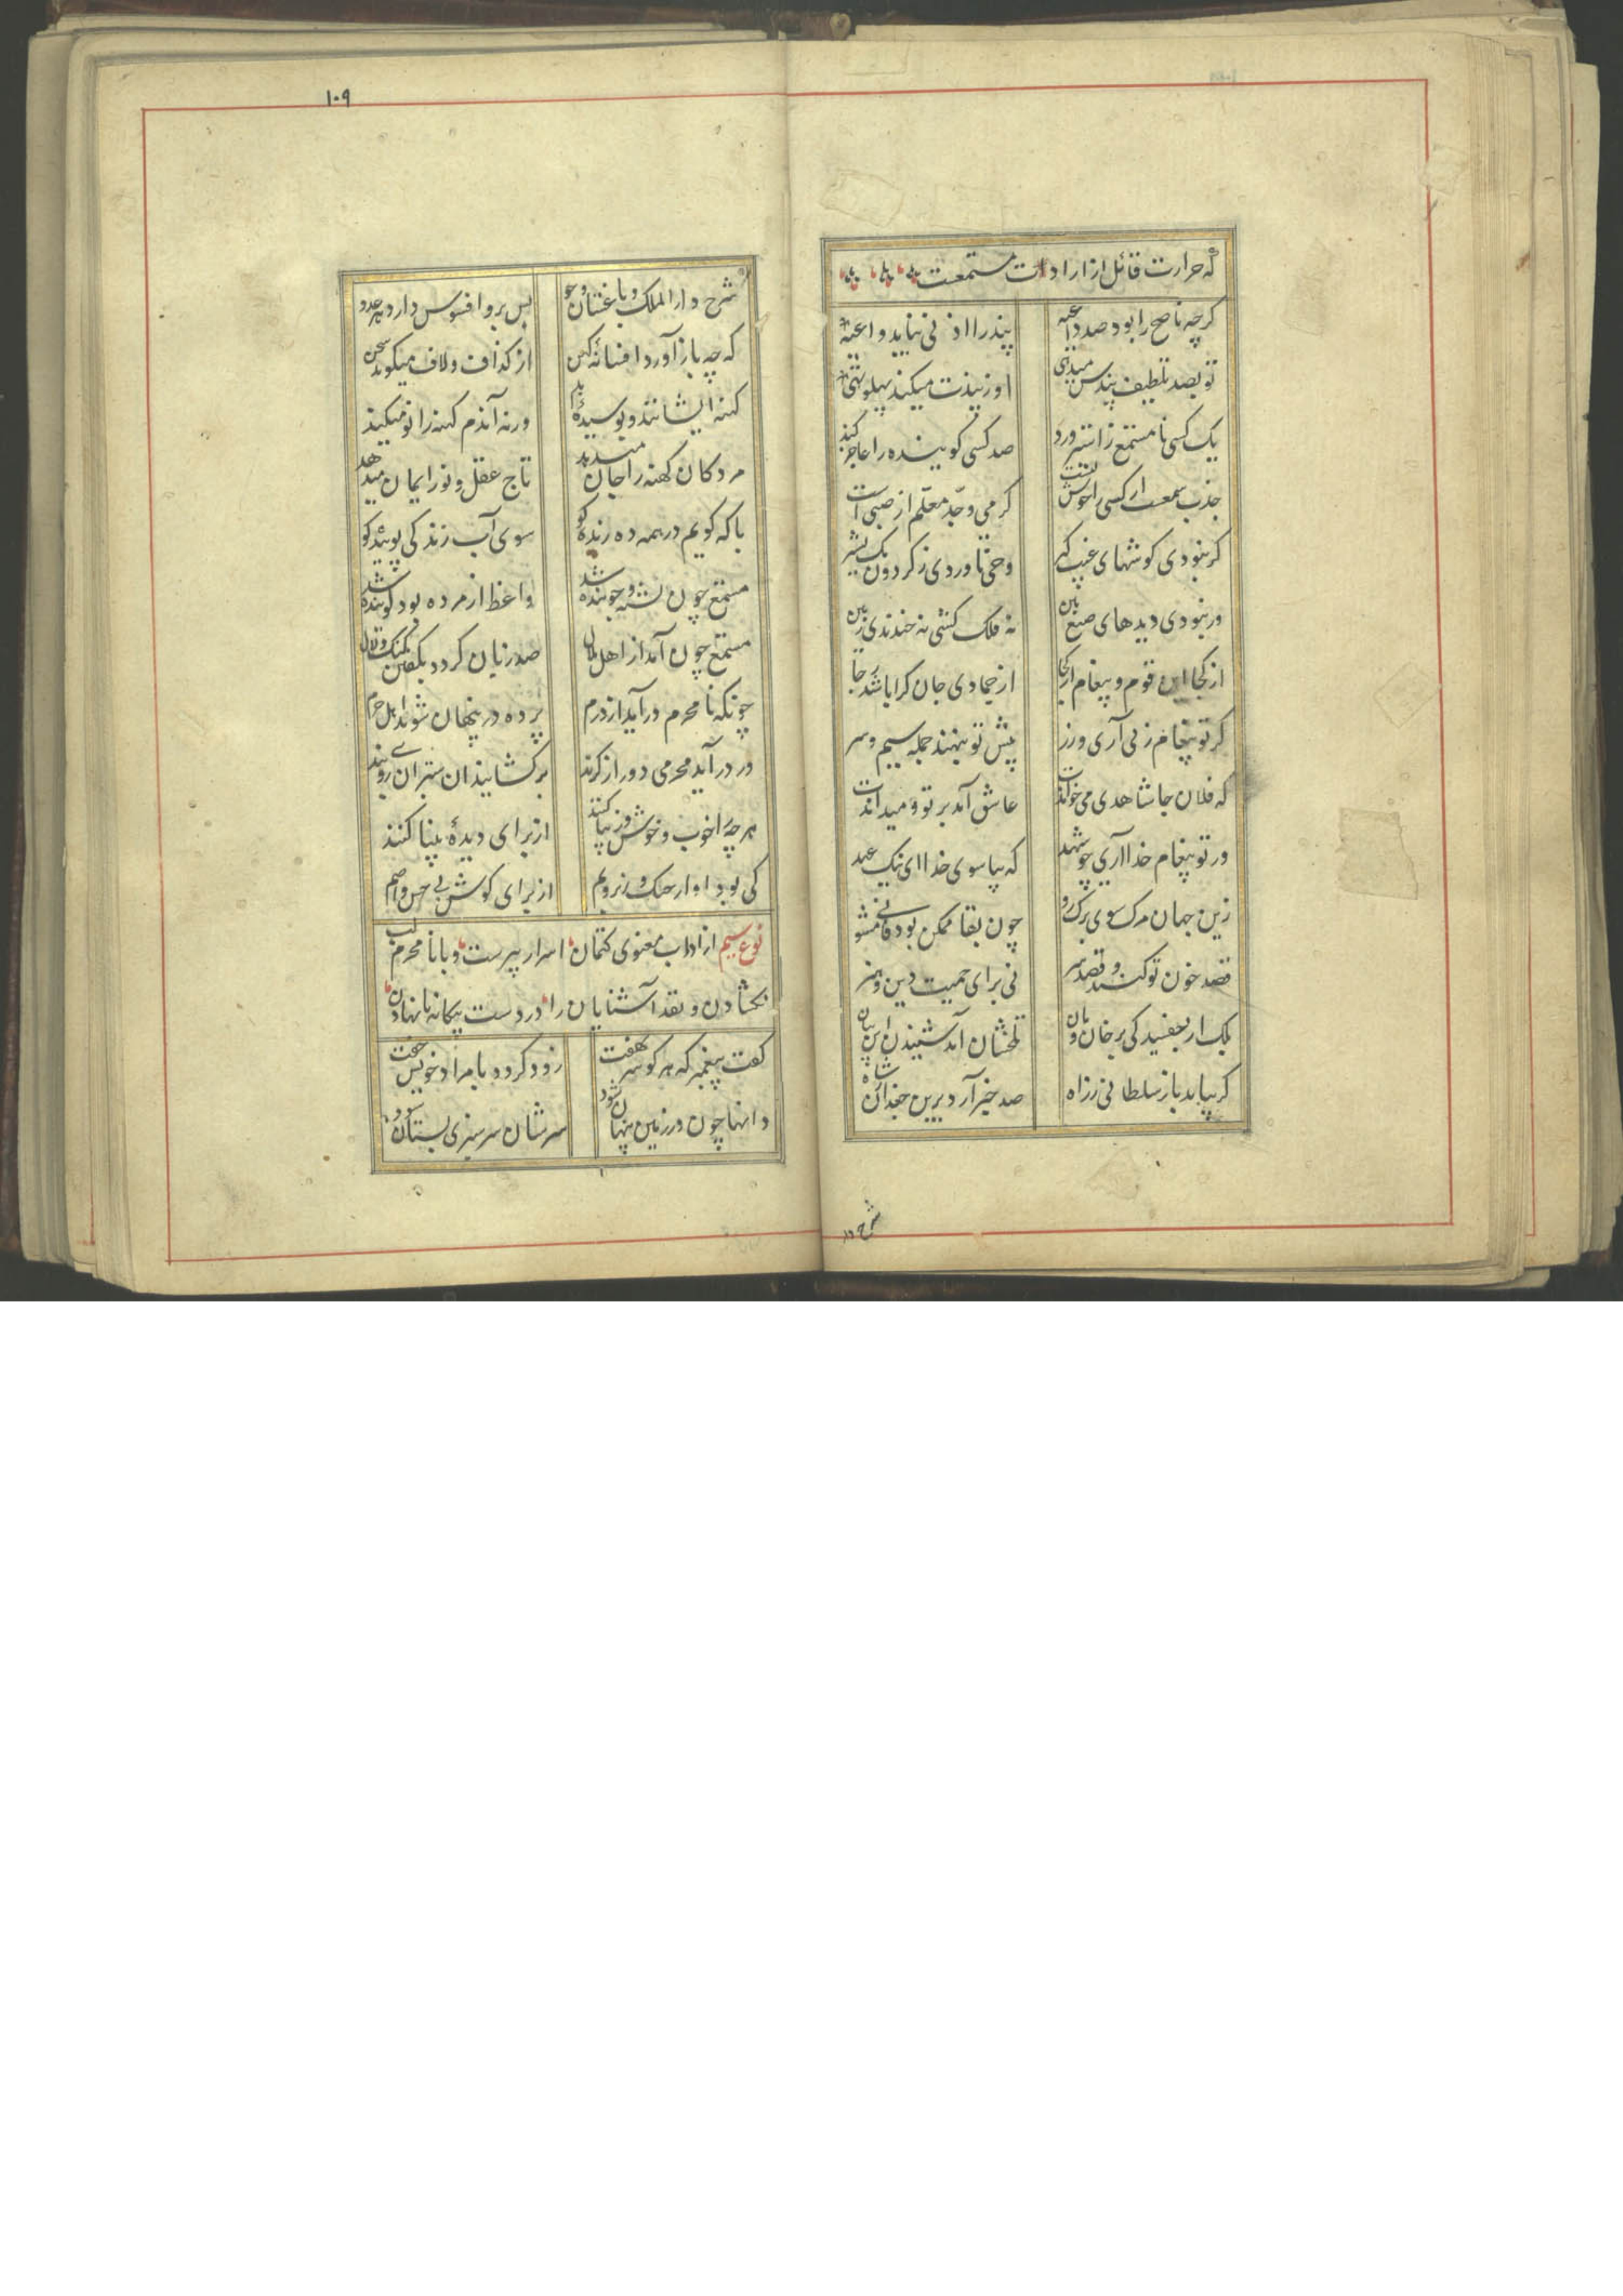 که حرارت قائل از ارادات مستمعت
کرچه ناصح را بود صد داعیه پند را اذنی بباید واعیه
تو بصد تلطیف پندش میدهی او ز پندت میکند پهلو تهی
یک کسی نا مستمع ز استیز ورد صد کسی کوینده را عاجز کند
جذب سمعت ار کسی را خوش لبیت کرمی وجد معلم از صبی است
کر نبودی کوشهای غیب کیر وحی ناوردی ز کردون یک بشیر
ور نبودی دیدهای صنع بین نه فلک کشتی نه خندیدی زمین
از کجا این قوم و پیغام از کجا از جمادی جان کرا باشد جا
کر تو پیغام زنی آری و زر پیش تو بنهند جمله سیم و سر
که فلان جا شاهدی می خواندت عاشق آمد بر تو و میداندت
ور تو پیغام خدا آری چو شهد که بیا سوی خدا ای نیک عهد
زین جهان مرک سوی برک رو چون بقا ممکن بود فانی مشو
قصد خون تو کنند و قصد سر نی برای حمیت دین و هنر
بلک از چفسیدکی بر خان و مان تلخشان آمد شنیدن این بیان
کر بیاید باز سلطانی ز راه صد خبر آرد برین جغدان ز شاه
شرح دار
۱۰۹
شرح دار الملک و باغستان و جو پس برو افسوس دارد هر عدو
که چه باز آورد افسانهٔ کهن از کذاف و لاف میکوید سخن
کهنه ایشانند و پوسیدهٔ بد ورنه آندم کهنه را نو میکند
مردکان کهنه را جان میدهد تاج عقل و نور ایمان میدهد
با که کویم در همه ده زنده کو سوی آب زندکی پوینده کو
مستمع چون تشنه و جوینده شد واعظ ار مرده بود کوینده شد
مستمع چون آمد از اهل ملال صد زبان کردد بکفتن کنک و لال
چونکه نا محرم در آید از درم پرده در پنهان شوند اهل حرم
ور در آید محرمی دور از کزند برکشایند آن ستیران روی بند
هر چه را خوب و خوش و زیبا کنند از برای دیدهٔ بینا کنند
کی بود اواز چنک و زیر و بم از برای کوش بی حس و اصم
نوع سیم از اداب معنوی کتمان اسرار پیرست و با نا محرم لب
نکشادن و نقد آشنایان را در دست بیکانه نانهادن
کفت پیغمبر که هر کو سر نهفت زود کردد با مراد خویش جفت
دانها چون در زمین پنهان شود سرشان سر سبزی بستان شود